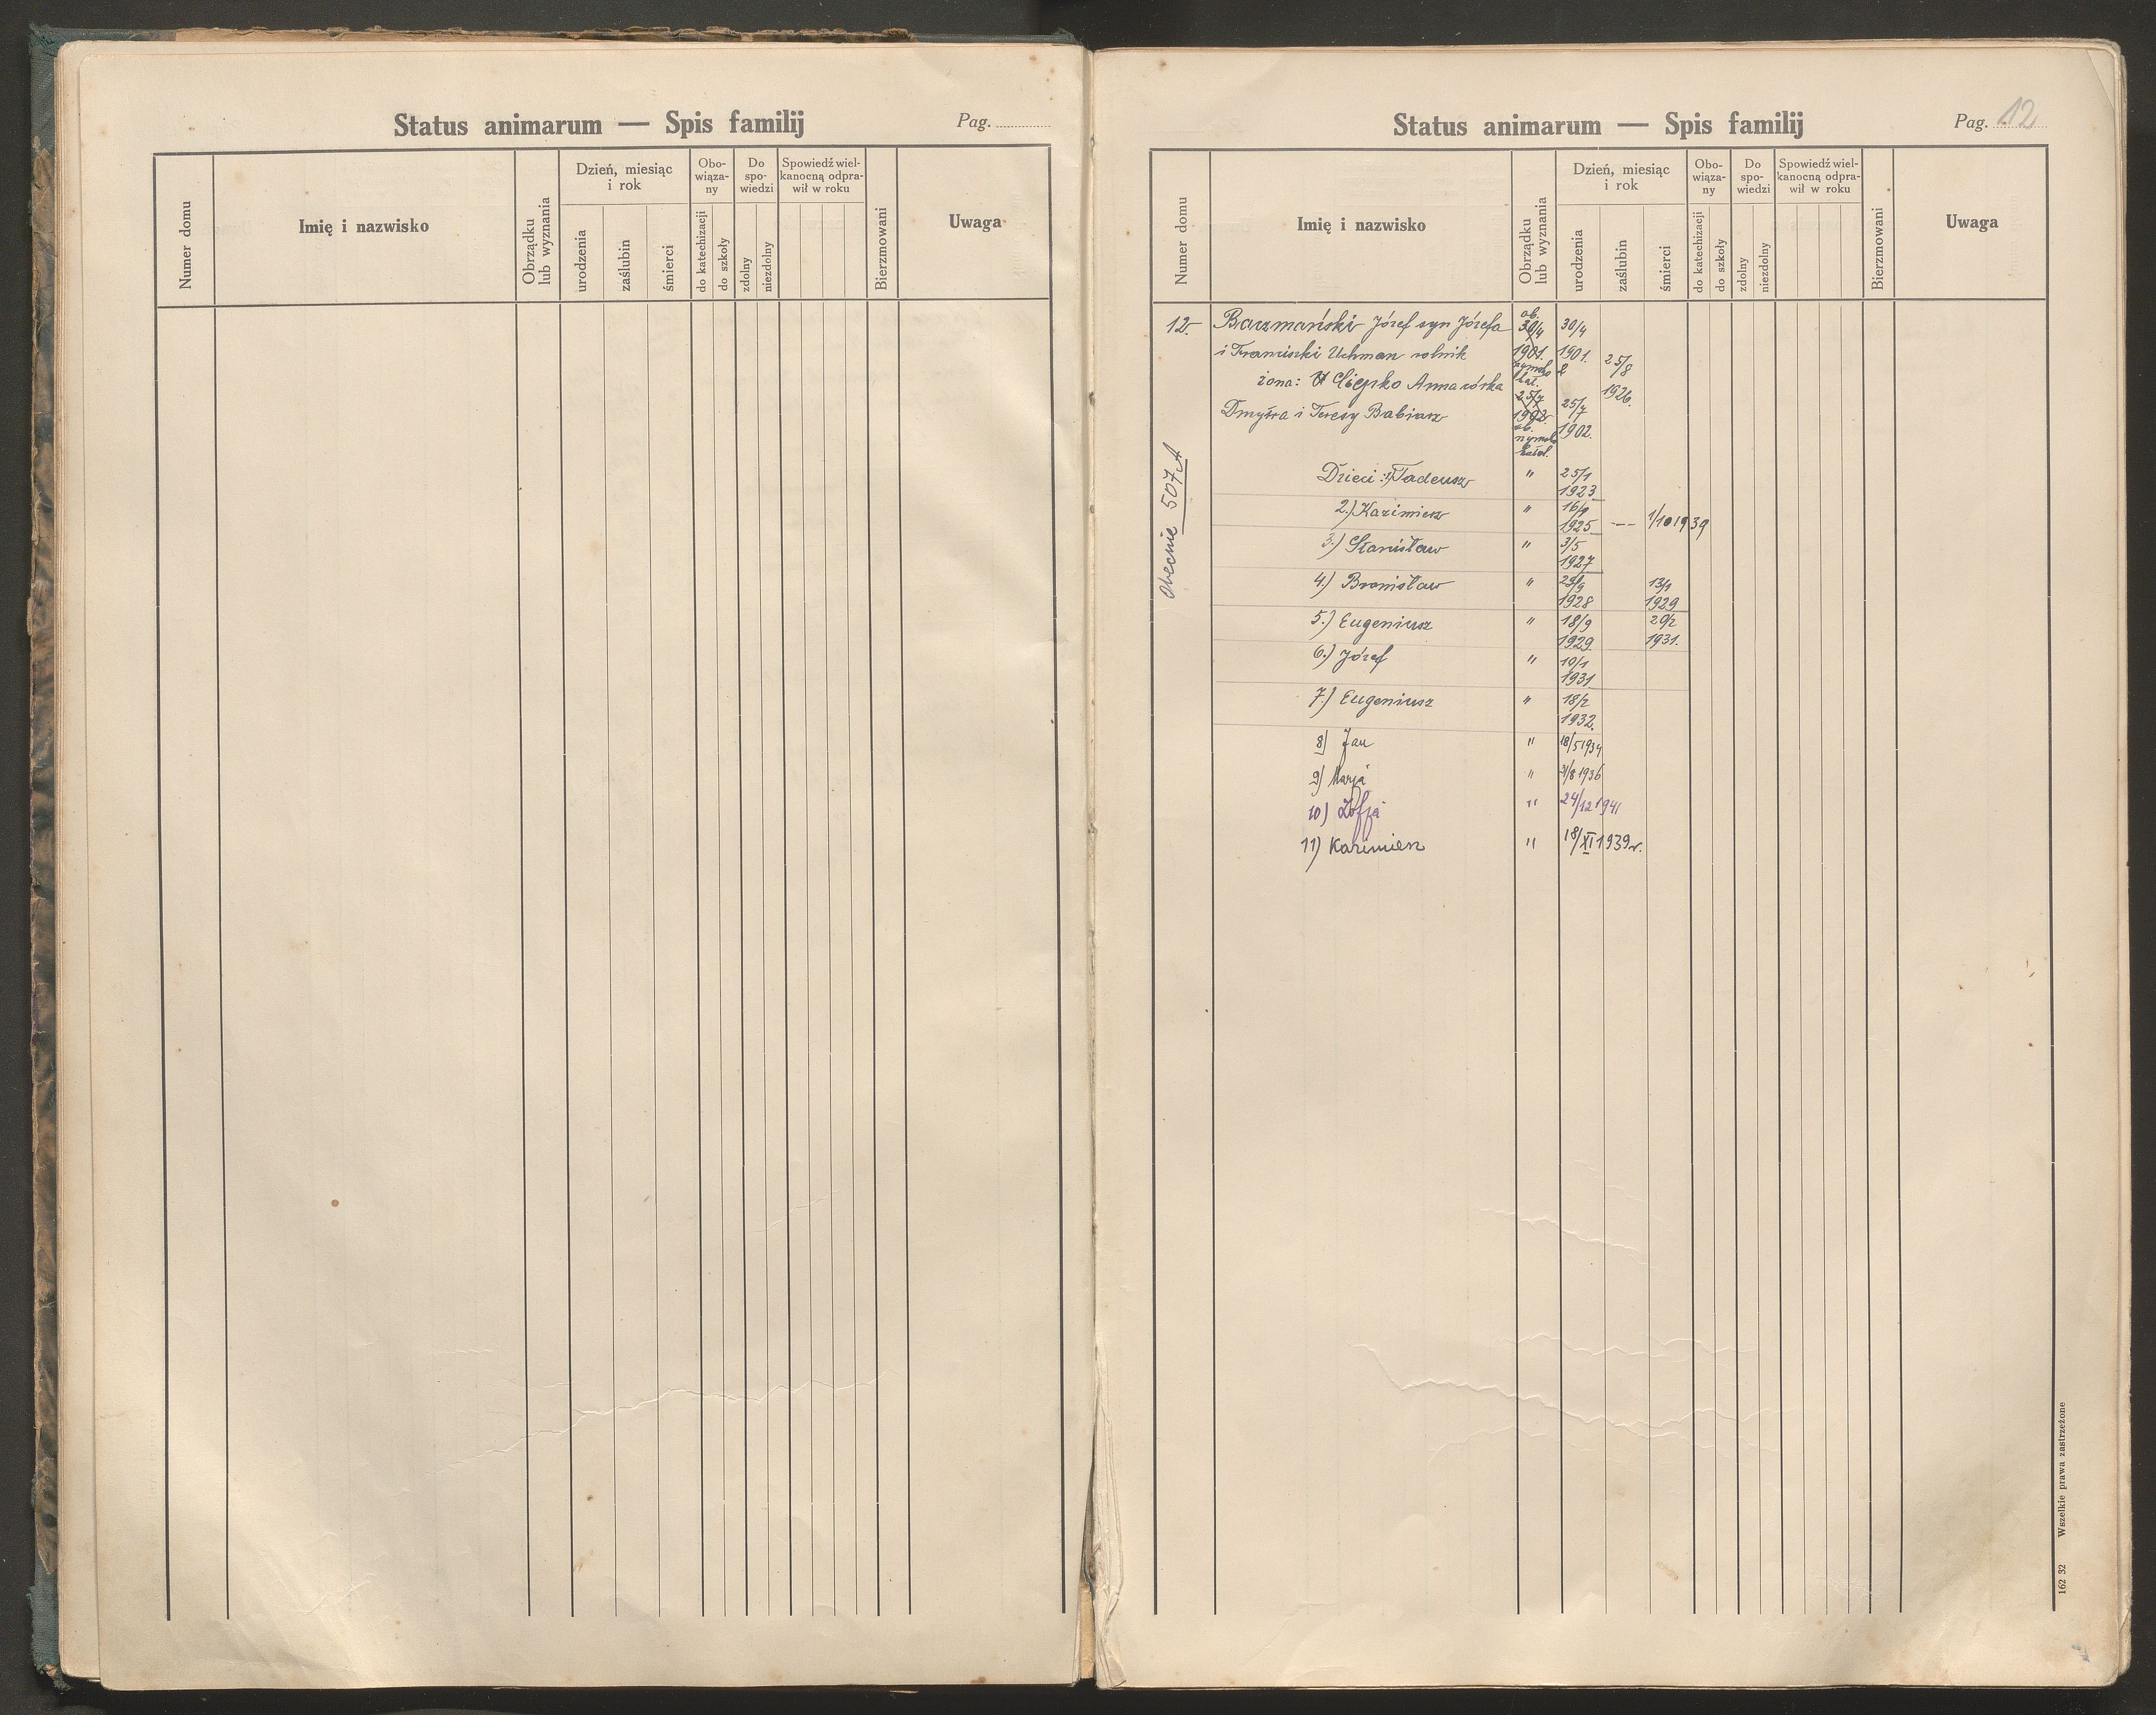 Status animarum — Spis familij
Pag.
Numer domu
Imię i nazwisko
Obrządku
lub wyznania
Dzień, miesiąc
i rok
urodzenia
zaślubin
śmierci
Obo-
wiąza-
ny
do katechizacji
do szkoły
Do
spo-
wiedzi
zdolny
niezdolny
Spowiedź wiel-
kanocną odpra-
wił w roku
Bierzmowani
Uwaga
Status animarum — Spis familij
Pag. 12
Numer domu
Imię i nazwisko
Obrządku
lub wyznania
Dzień, miesiąc
i rok
urodzenia
zaślubin
śmierci
Obo-
wiąza-
ny
do katechizacji
do szkoły
Do
spo-
wiedzi
zdolny
niezdolny
Spowiedź wiel-
kanocną odpra-
wił w roku
Bierzmowani
Uwaga
12. Baczmański Józef syn Józefa ob. 30/4 30/4
i Franciszki Uchman rolnik 1901. 1901. 25/8
żona: Anna córka 1926.
Dmytra i Teresy Babiarz 1902. 25/7
ob. 1902.
obecnie 507 A
Dzieci: 1) Tadeusz " 25/1 1923
2.) Kazimierz " 16/9 1925 — 1/10 1939
3.) Stanisław " 3/5 1927
4.) Bronisław " 1928 13/1 1929
5.) Eugeniusz " 18/9 1929. 20/2 1931.
6.) Józef " 10/1 1931
7.) Eugeniusz " 18/2 1932.
8) Jan " 18/5 1934
9) Marja " /8 1936
10) Zofja " 24/12 1941
11) Kazimierz " 18/XI 1939 r.
162 32 Wszelkie prawa zastrzeżone